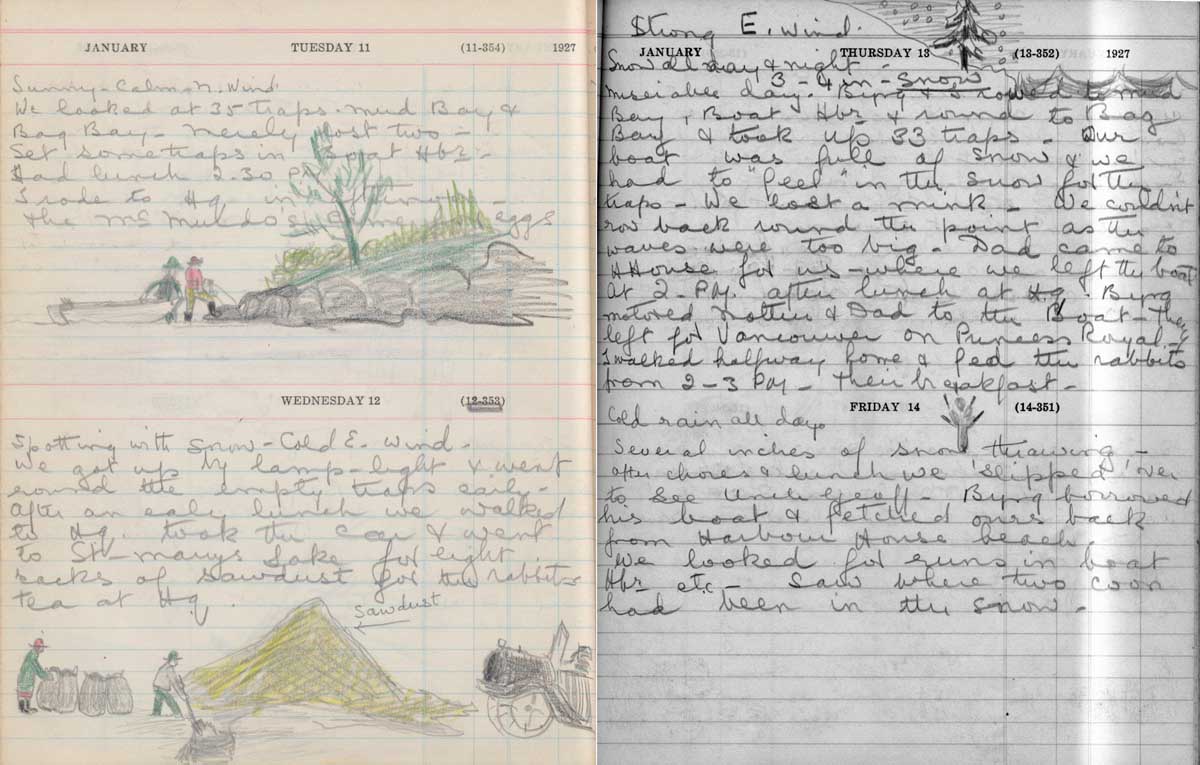 JANUARY TUESDAY 11 (11-354) 1927
Sunny - Calm N. Wind
We looked at 35 traps. Mud Bay &
Bag Bay - Merely lost two -
Set some traps in Boat Hbr -
Had lunch 2.30 PM
I rode to Hq. in afternoon -
& the eggs
WEDNESDAY 12 (12-353)
Spotting with snow - Cold E. Wind -
We got up by lamp-light & went
round the empty traps early -
After an early lunch we walked
to Hq. took the car & went
to St. Marys Lake for eight
sacks of sawdust for the rabbits
tea at Hq.
sawdust
Strong E. Wind.
JANUARY THURSDAY 13 (13-352) 1927
Snow all day & night -
3-4 in - snow
miserable day. Byng & I rowed to Mud
Bay, Boat Hbr & round to Bag
Bay & took up 33 traps - Our
boat was full of snow & we
had to "feel" in the snow for the
traps - We lost a mink - We couldn't
row back round the point as the
waves were too big - Dad came to
HHouse for us - where we left the boat
at 2 - PM. after lunch at Hq. Byng
motored Mother & Dad to the Boat - they
left for Vancouver on Princess Royal -
I walked halfway home & fed the rabbits
from 2-3 PM - their breakfast -
FRIDAY 14 (14-351)
Cold rain all day
Several inches of snow thawing -
after chores & lunch we 'slipped' over
to see Uncle Geoff - Byng borrowed
his boat & fetched ours back
from Harbour House beach.
We looked for runs in boat
Hbr etc - Saw where two coon
had been in the snow -